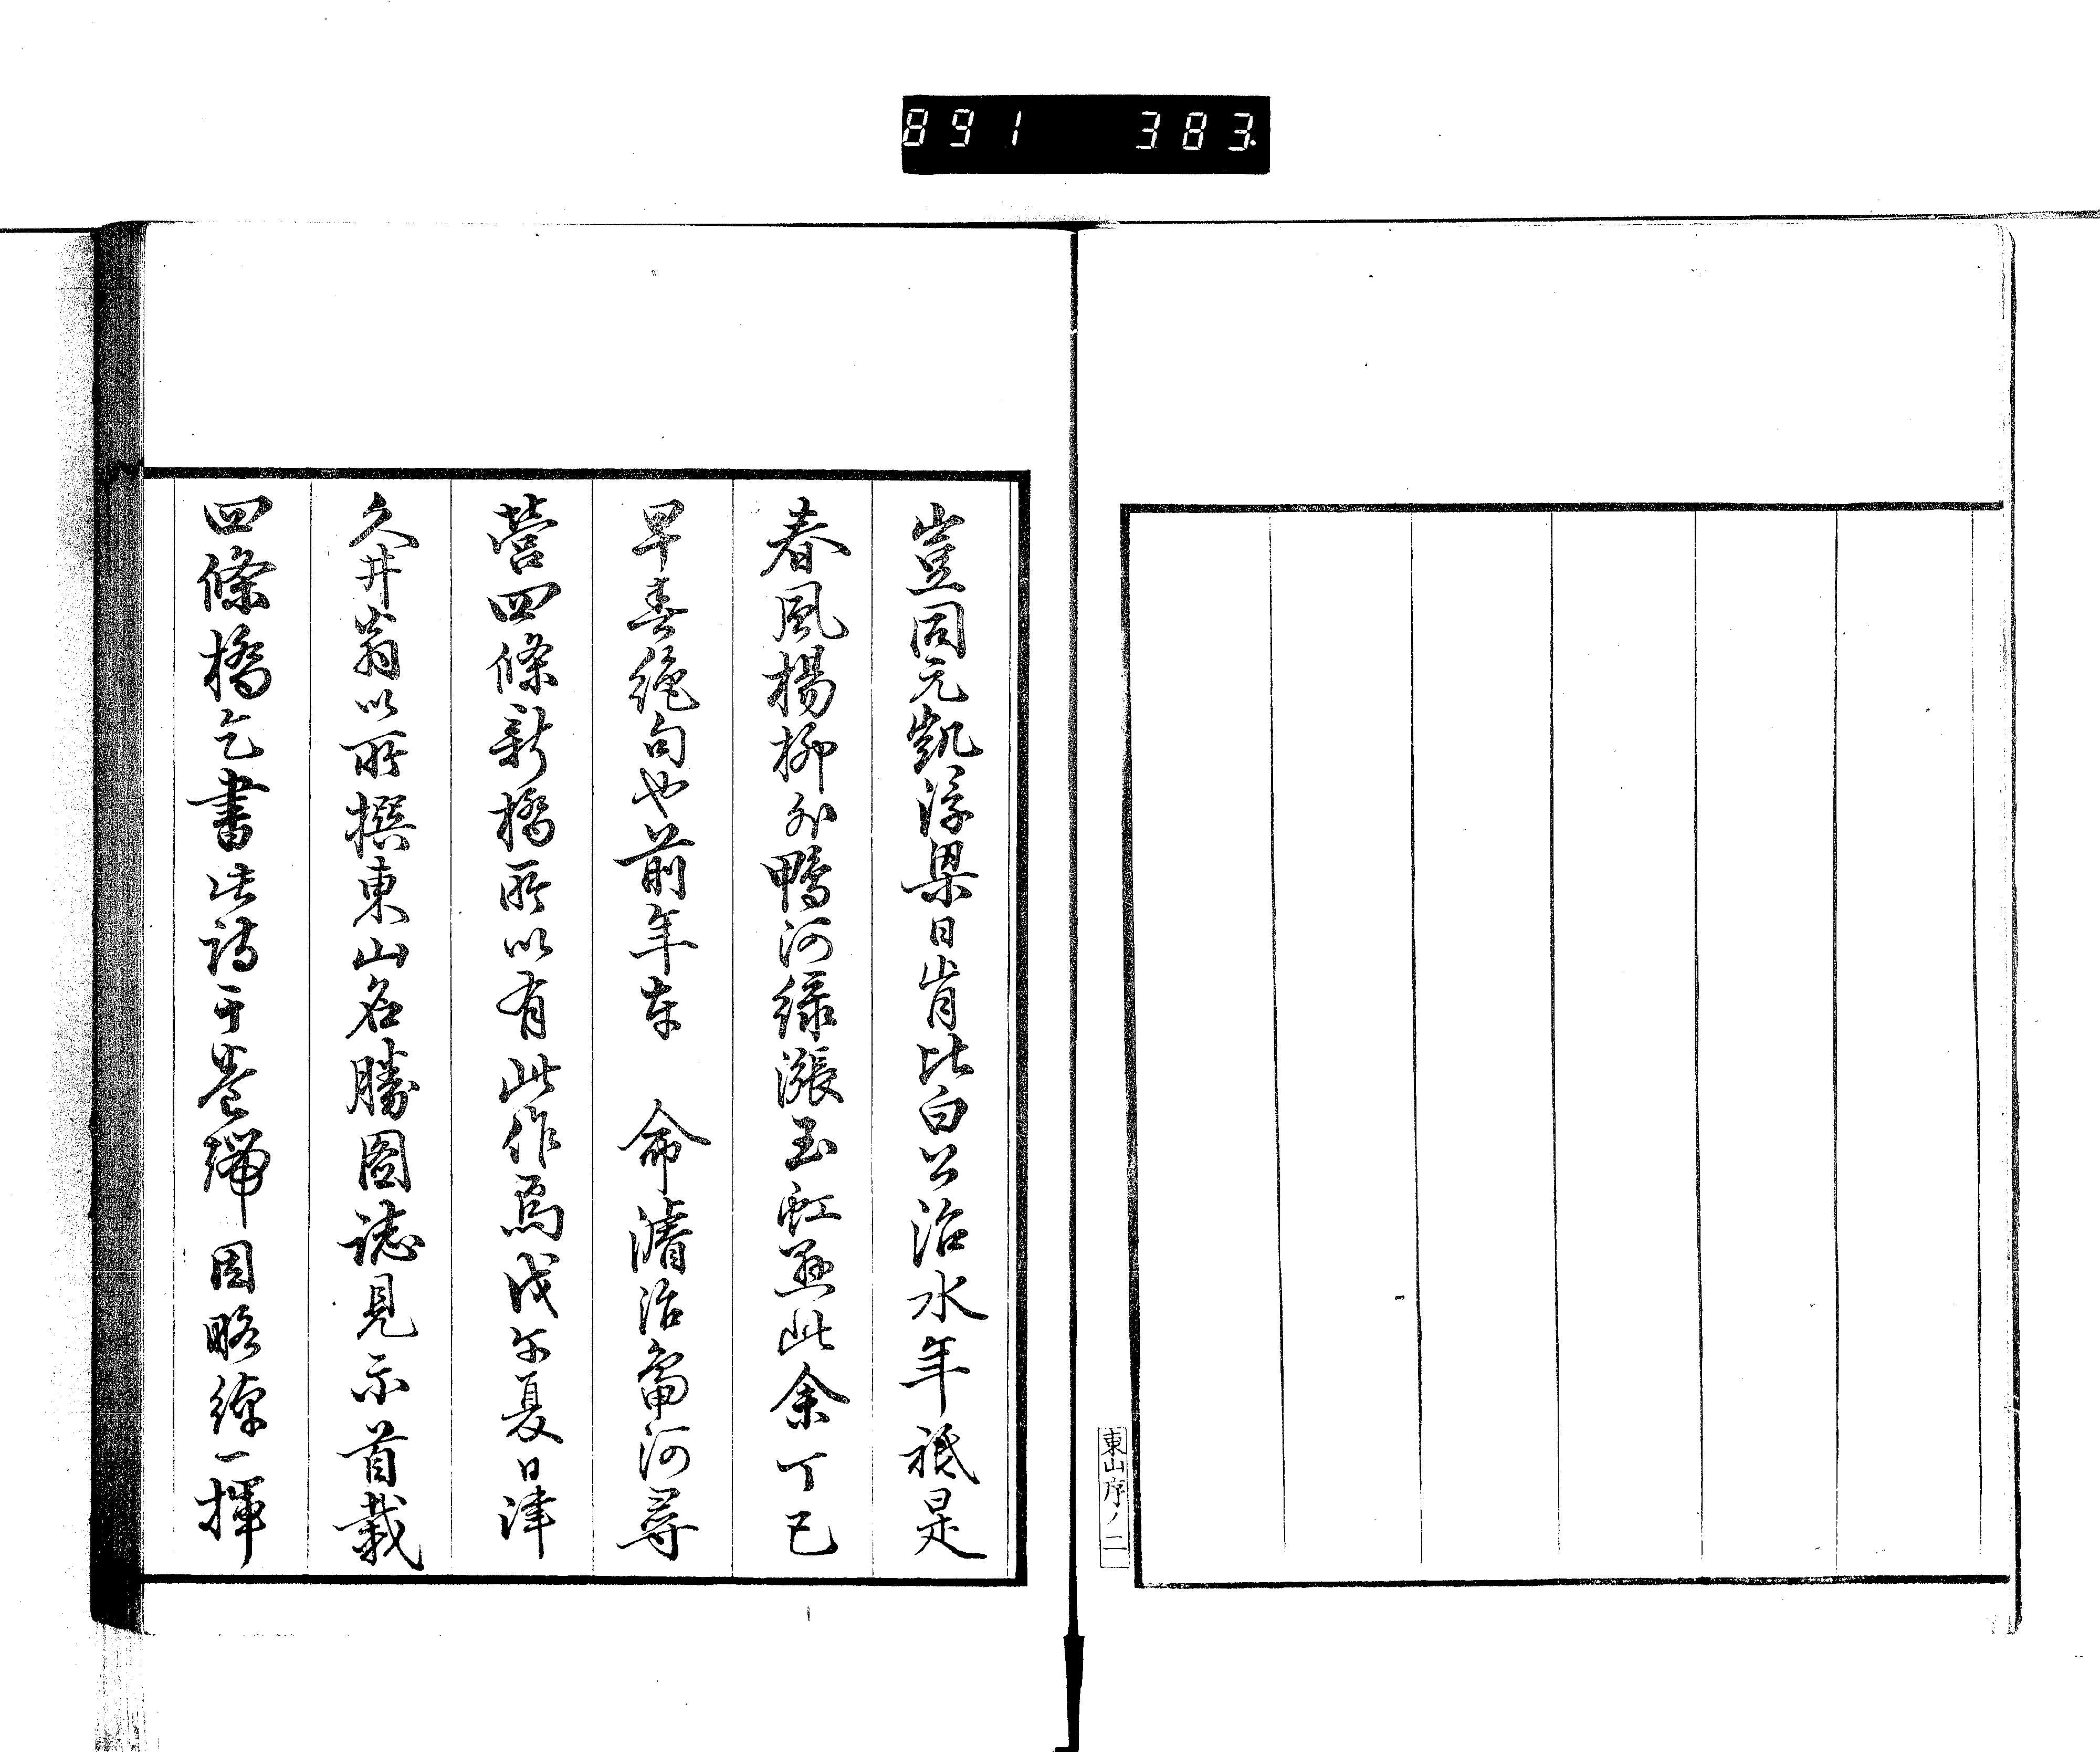 891 383
東山序ノ二
豈同元凱浮梁日肯比白公治水年祗是
春風楊柳外鴨河綠漲玉虹懸此余丁巳
早春絶句也前年奉 命濬治鴨河尋
營四條新橋所以有此作焉戊午夏日津
久井翁以所撰東山名勝圖誌見示首載
四條橋乞書此詩于卷端因略綴一揮